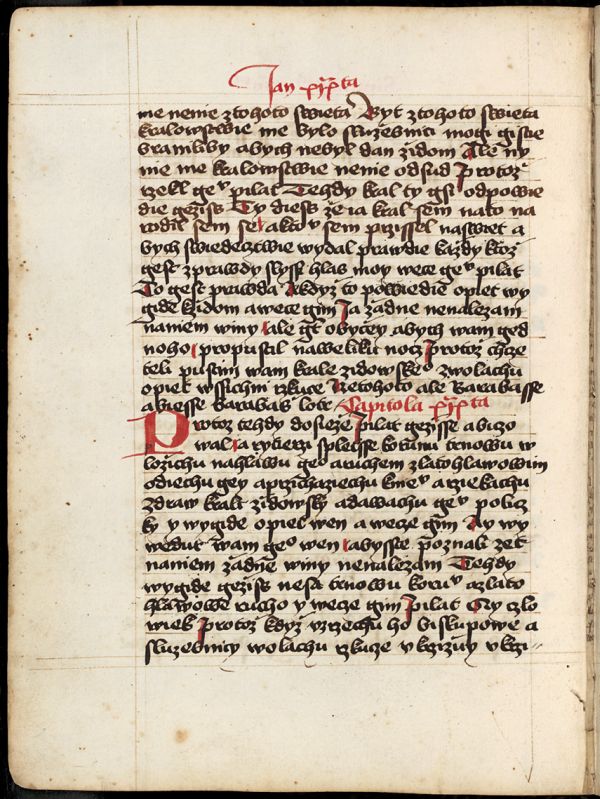 Jan xixta
me nenie ztohoto swieta Byt ztohoto swieta
kralowstwie me bylo sluzebnici mogi gistie
branliby abych nebyl dan zidom Ale ny
nie me kralowstwie nenie odsud Protoz
rzekl geᵘ pilat Tehdy kral ty gsi odpowie
die geziss Ty diess ze ia kral sem nato na
rodil sem se a kᵗoᵘ sem prissel naswiet a
bych swiedecztwie wydal prawdie kazdy ktoz
gest zprawdy slyssi hlas moy wece geᵘ pilat
Co gest prawda Akdyz to powiedie opiet wy
gide kzidom awece gim Ja zadne nenalezam
naniem winy ale gt obyczey abych wam ged
noho propustil naweliku nocz Protoz chcze
teli pustim wam krale zidowskeᵒ zwolachu
opiet wssichni rzkuce Netohoto ale Barabasse
abiesse barabas lotr Capitola xixta
Protoz tehdy dosieze Pilat gezisse a biczo
wal a rytierzi spletsse korunu trnowu w
lozichu nahlawu geᵒ aruchem zlatohlawowim
odiechu gey aprzichaziechu knieᵘ a rziekachu
Zdraw krali zidowsky adawachu geᵘ policz
ky y wygide opiet wen a wecze gim Ay wy
wedu wam geᵒ wen abyste poznali zet
naniem zadne winy nenalezam Tehdy
wygide geziss nesa trnowu koruᵘ azlato
hlawowe rucho y wecze gim Pilat Ay czlo
wiek Protoz kdyz vzrzechu ho biskupowe a
sluzebnicy wolachu rzkucze vkrizuy vkrzi